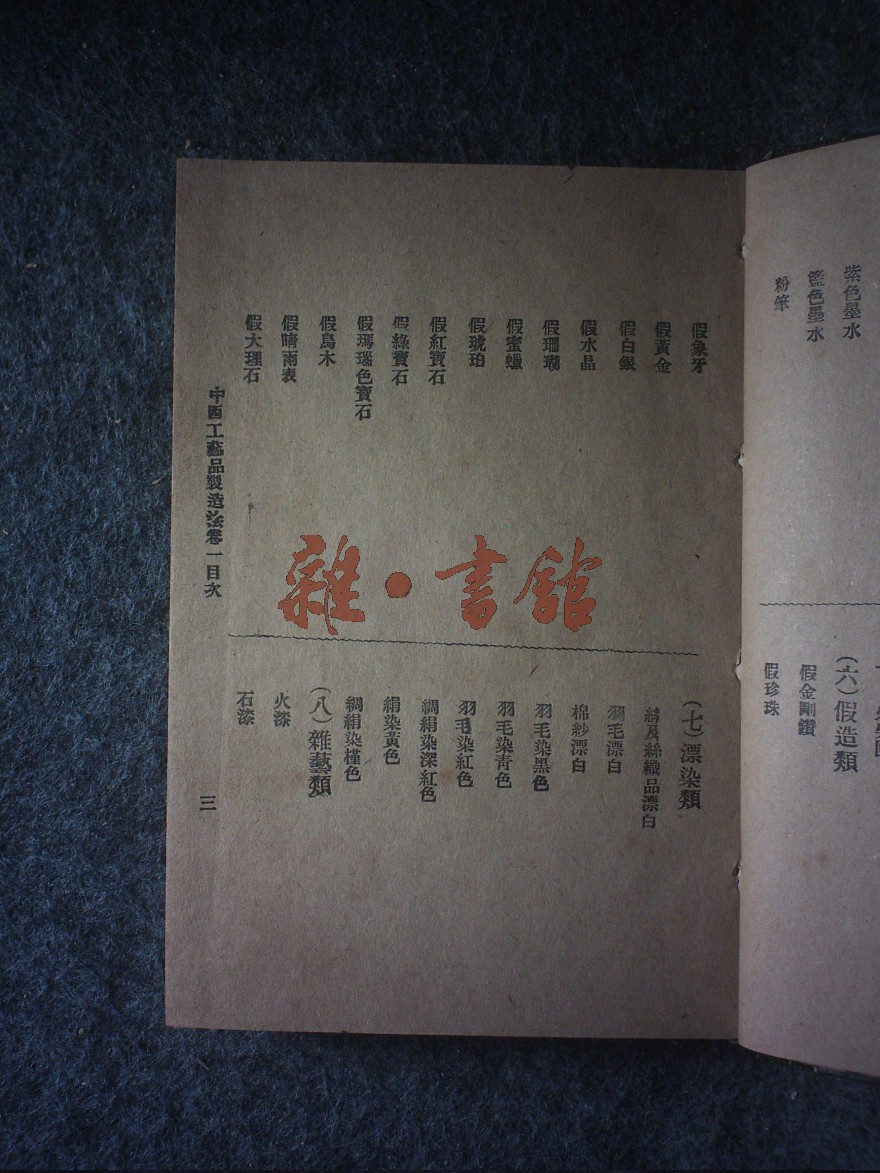 紫色墨水
籃色墨水
粉筆
(六)假造類
假金剛鑽
假珍珠
假象牙
假黃金
假白銀
假水晶
假珊瑚
假蜜蠟
假琥珀
假紅寶石
假綠寶石
假瑪瑙色寶石
假烏木
假晴雨表
假大理石
(七)漂染類
絲及絲織品漂白
羽毛漂白
棉紗漂白
羽毛染黑色
羽毛染青色
羽毛染紅色
綢絹染深紅色
絹染黃色
綢絹染槿色
(八)雜藝類
火漆
石漆
中西工藝品製造法卷一目次
三
雜·書館